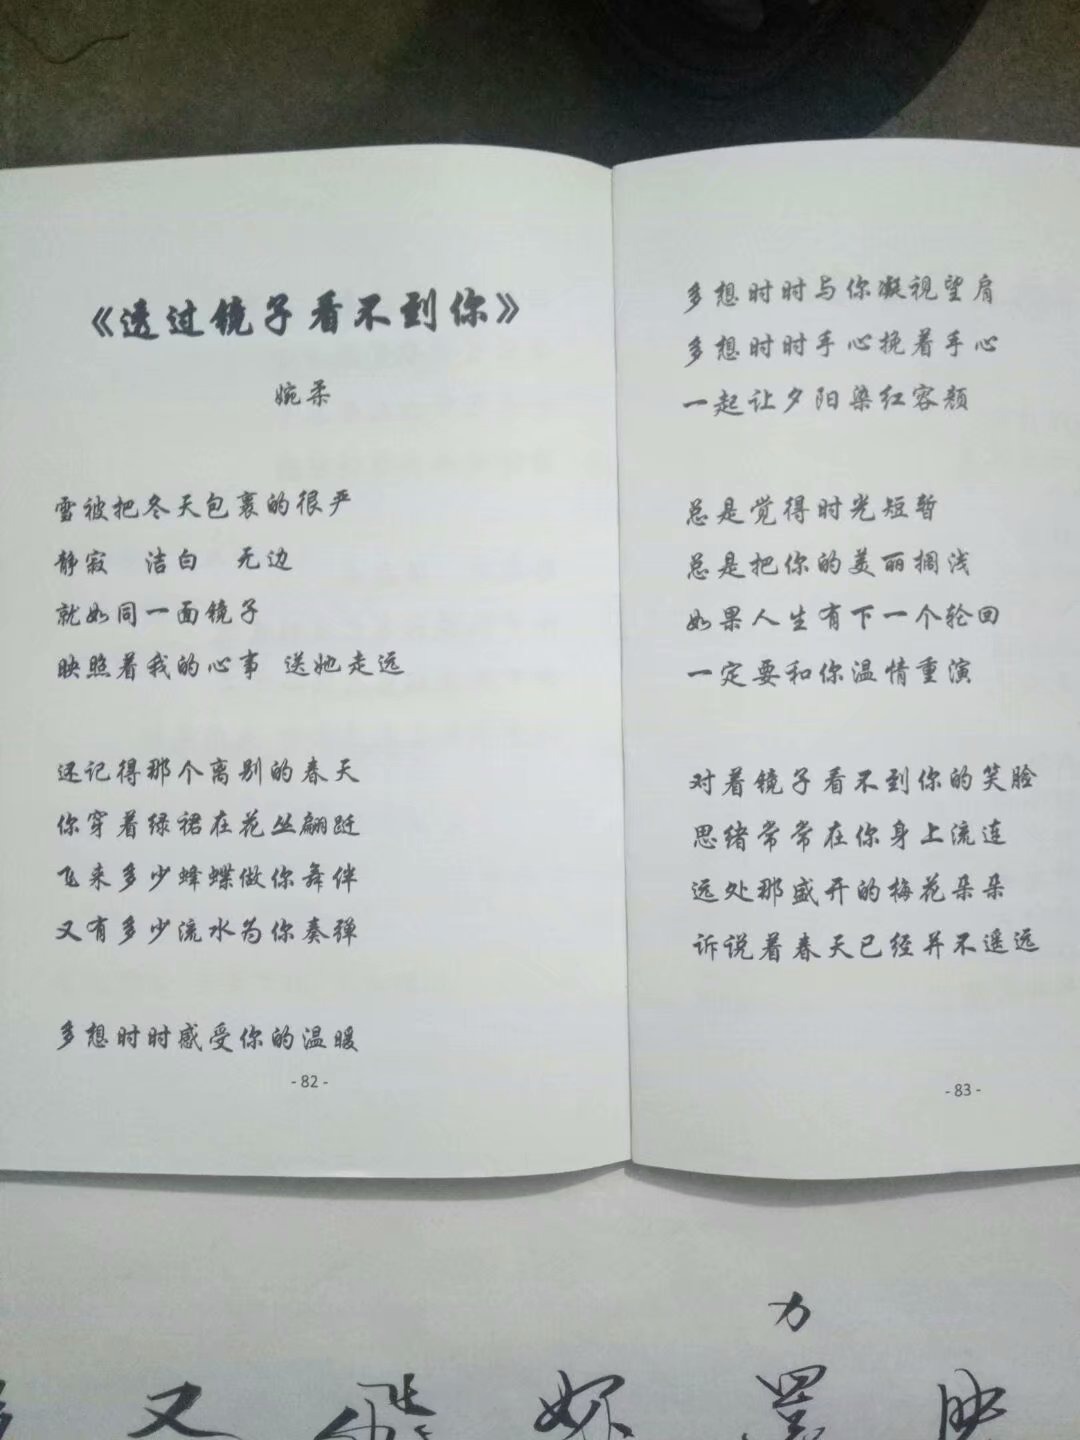 《透过镜子看不到你》
婉柔
雪被把冬天包裹的很严
静寂 洁白 无边
就如同一面镜子
映照着我的心事 送她走远
还记得那个离别的春天
你穿着绿裙在花丛翩跹
飞来多少蜂蝶做你舞伴
又有多少流水为你奏弹
多想时时感受你的温暖
- 82 -
多想时时与你凝视望肩
多想时时手心挽着手心
一起让夕阳染红容颜
总是觉得时光短暂
总是把你的美丽搁浅
如果人生有下一个轮回
一定要和你温情重演
对着镜子看不到你的笑脸
思绪常常在你身上流连
远处那盛开的梅花朵朵
诉说着春天已经并不遥远
- 83 -
力
又
映